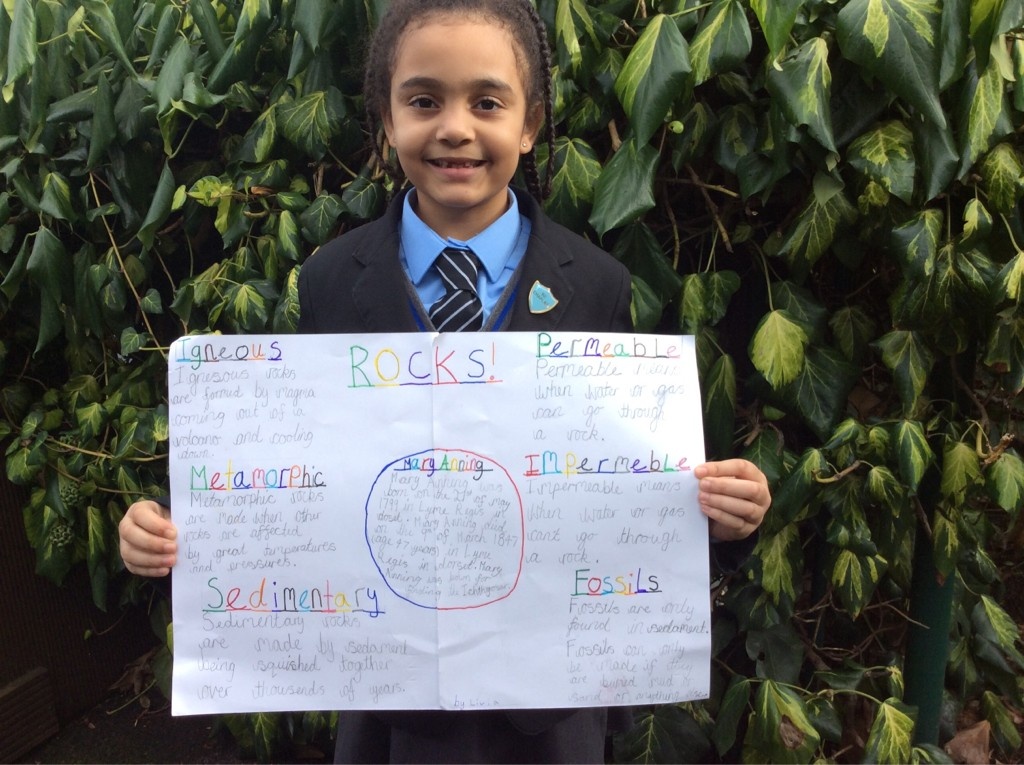 Igneous
Ignesous rocks
are formed by magma
coming out of a
volcano and cooling
down.
Metamorphic
Metamorphic rocks
are made when other
rocks are affected
by great temperatures
and pressures.
Sedimentary
Sedimentary rocks
are made by sedament
being squished together
over thousends of years.
ROCKS!
Mary Anning
Mary Anning was
born on the 21st of may
1799 in Lyme Regis in
dorset. Mary Anning died
on the 9th of March 1847
(age 47 years) in Lyme
Regis in dorset. Mary
Anning was known for
finding the
by
Permeable
Permeable
When water or gas
can go through
a rock.
Impermeable
Impermeable means
When water or gas
cant go through
a rock.
Fossils
Fossils are only
found in sedament.
Fossils can only
be made if they
are buried mud or
sand or anything